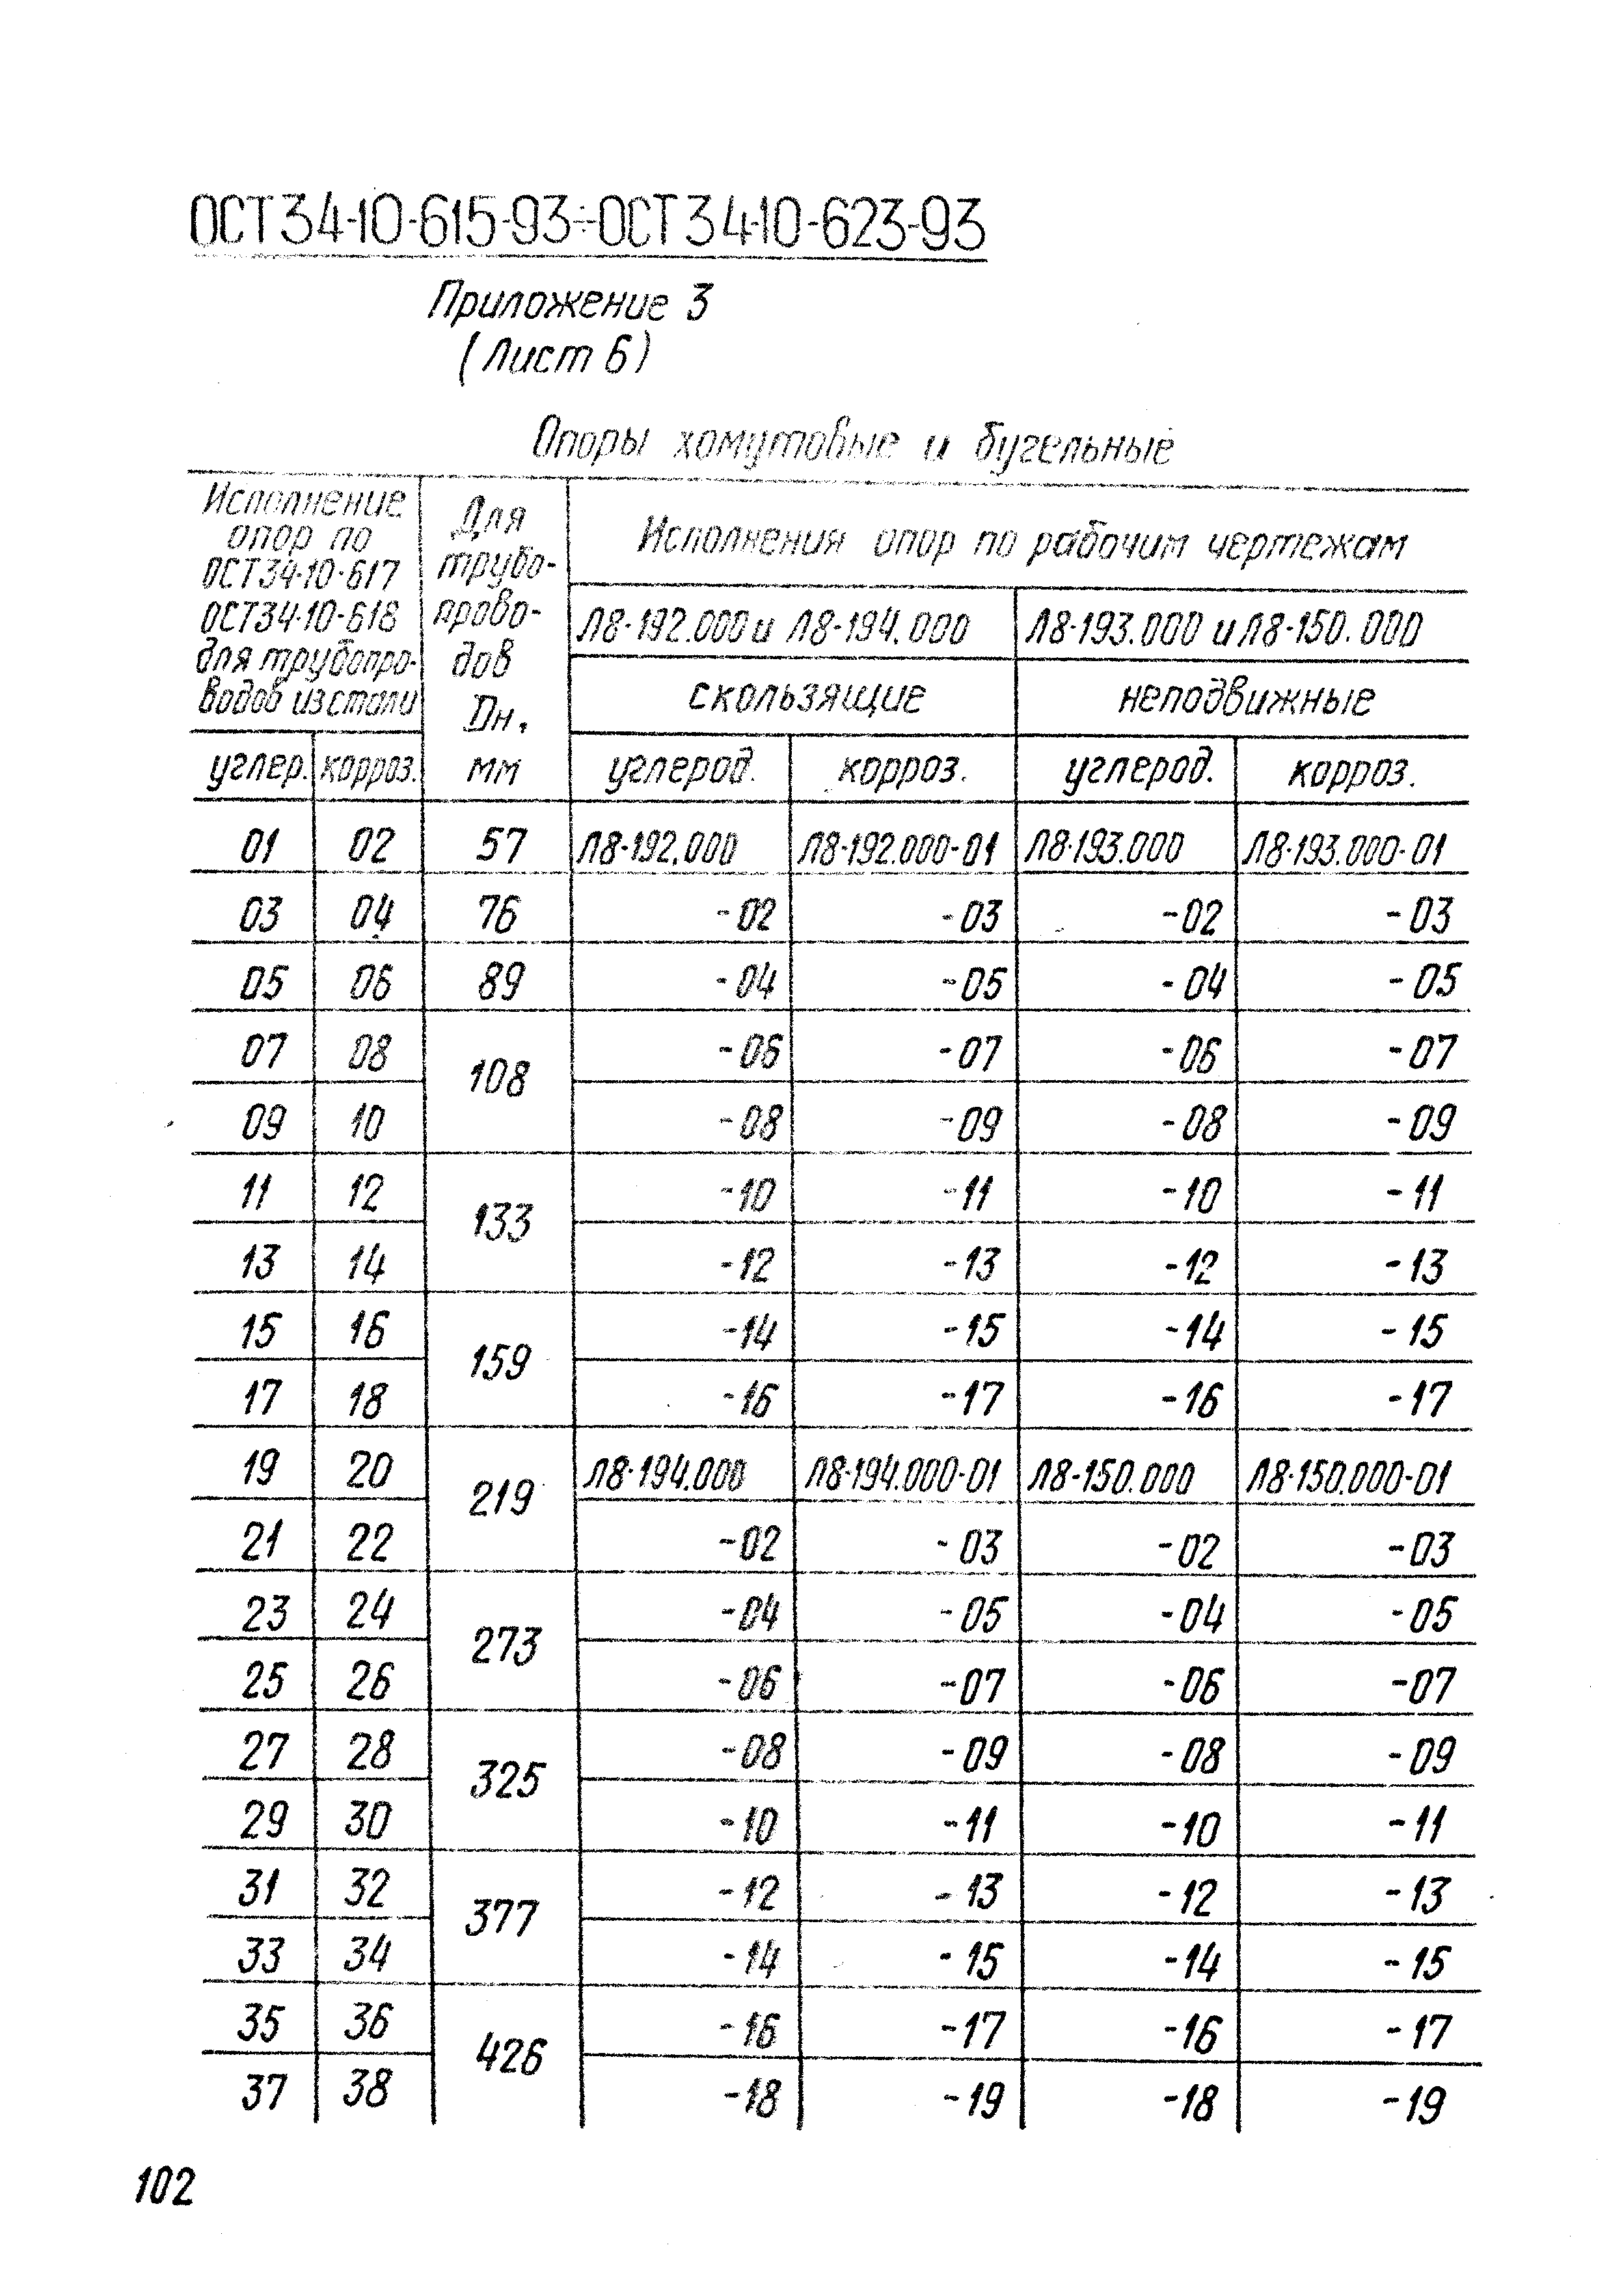 ОСТ 34-10-615-93÷ОСТ 34-10-623-93
Приложение 3
(Лист 6)
Опоры хомутовые и бугельные
Исполнение
опор по
ОСТ34-10-617
ОСТ34-10-618
для трубопро-
водов из стали
Для
трубо-
прово-
дов
Dн,
мм
Исполнения опор по рабочим чертежам
Л8-192.000 и Л8-194.000 Л8-193.000 и Л8-150.000
скользящие неподвижные
углер. корроз. углерод. корроз. углерод. корроз.
01 02 57 Л8-192.000 Л8-192.000-01 Л8-193.000 Л8-193.000-01
03 04 76 -02 -03 -02 -03
05 06 89 -04 -05 -04 -05
07 08 108 -06 -07 -06 -07
09 10 -08 -09 -08 -09
11 12 133 -10 -11 -10 -11
13 14 -12 -13 -12 -13
15 16 159 -14 -15 -14 -15
17 18 -16 -17 -16 -17
19 20 219 Л8-194.000 Л8-194.000-01 Л8-150.000 Л8-150.000-01
21 22 -02 -03 -02 -03
23 24 273 -04 -05 -04 -05
25 26 -06 -07 -06 -07
27 28 325 -08 -09 -08 -09
29 30 -10 -11 -10 -11
31 32 377 -12 -13 -12 -13
33 34 -14 -15 -14 -15
35 36 426 -16 -17 -16 -17
37 38 -18 -19 -18 -19
102